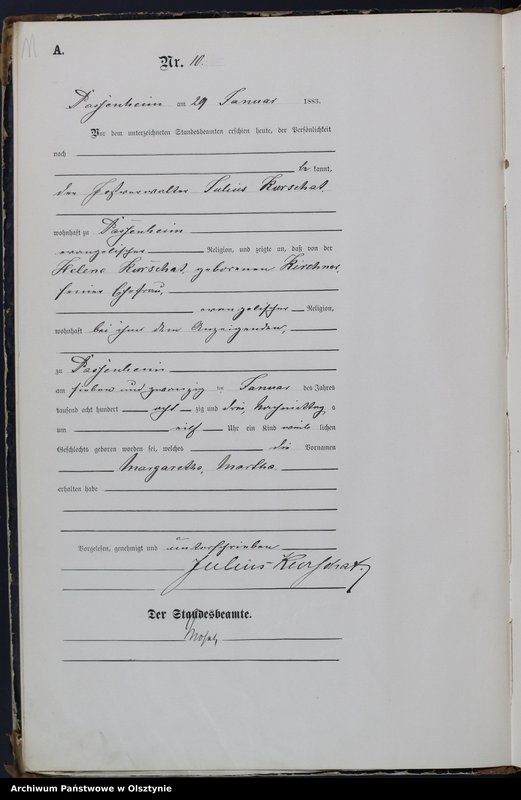 A.
Nr. 10.
Passenheim am 29 Januar 1883.
Vor dem unterzeichneten Standesbeamten erschien heute, der Persönlichkeit
nach
be kannt,
der Postverwalter Julius Kurschat,
wohnhaft zu Passenheim
evangelischer Religion, und zeigte an, daß von der
Helene Kurschat, geborenen Kirchner,
seiner Ehefrau,
evangelischer Religion,
wohnhaft bei ihm dem Anzeigenden,
zu Passenheim
am sieben und zwanzig ten Januar des Jahres
tausend acht hundert acht zig und drei, Nachmittags
um elf Uhr ein Kind weib lichen
Geschlechts geboren worden sei, welches die Vornamen
Margarethe, Martha
erhalten habe
Vorgelesen, genehmigt und unterschrieben
Julius Kurschat.
Der Standesbeamte.
Archiwum Państwowe w Olsztynie